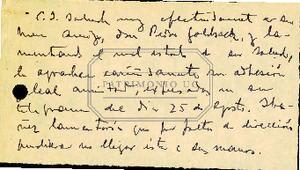 C. I. saluda muy afectuosamente a su
buen amigo, don Pedro Goldsack, y la-
mentando el mal estado de su salud,
le agradece cariñosamente su adhesión
leal amistad expresada en su
telegrama del día 25 de Agosto. Ibá-
ñez lamentaría que por falta de dirección
pudiera no llegar ésta a sus manos.
PATRIMONIO UC